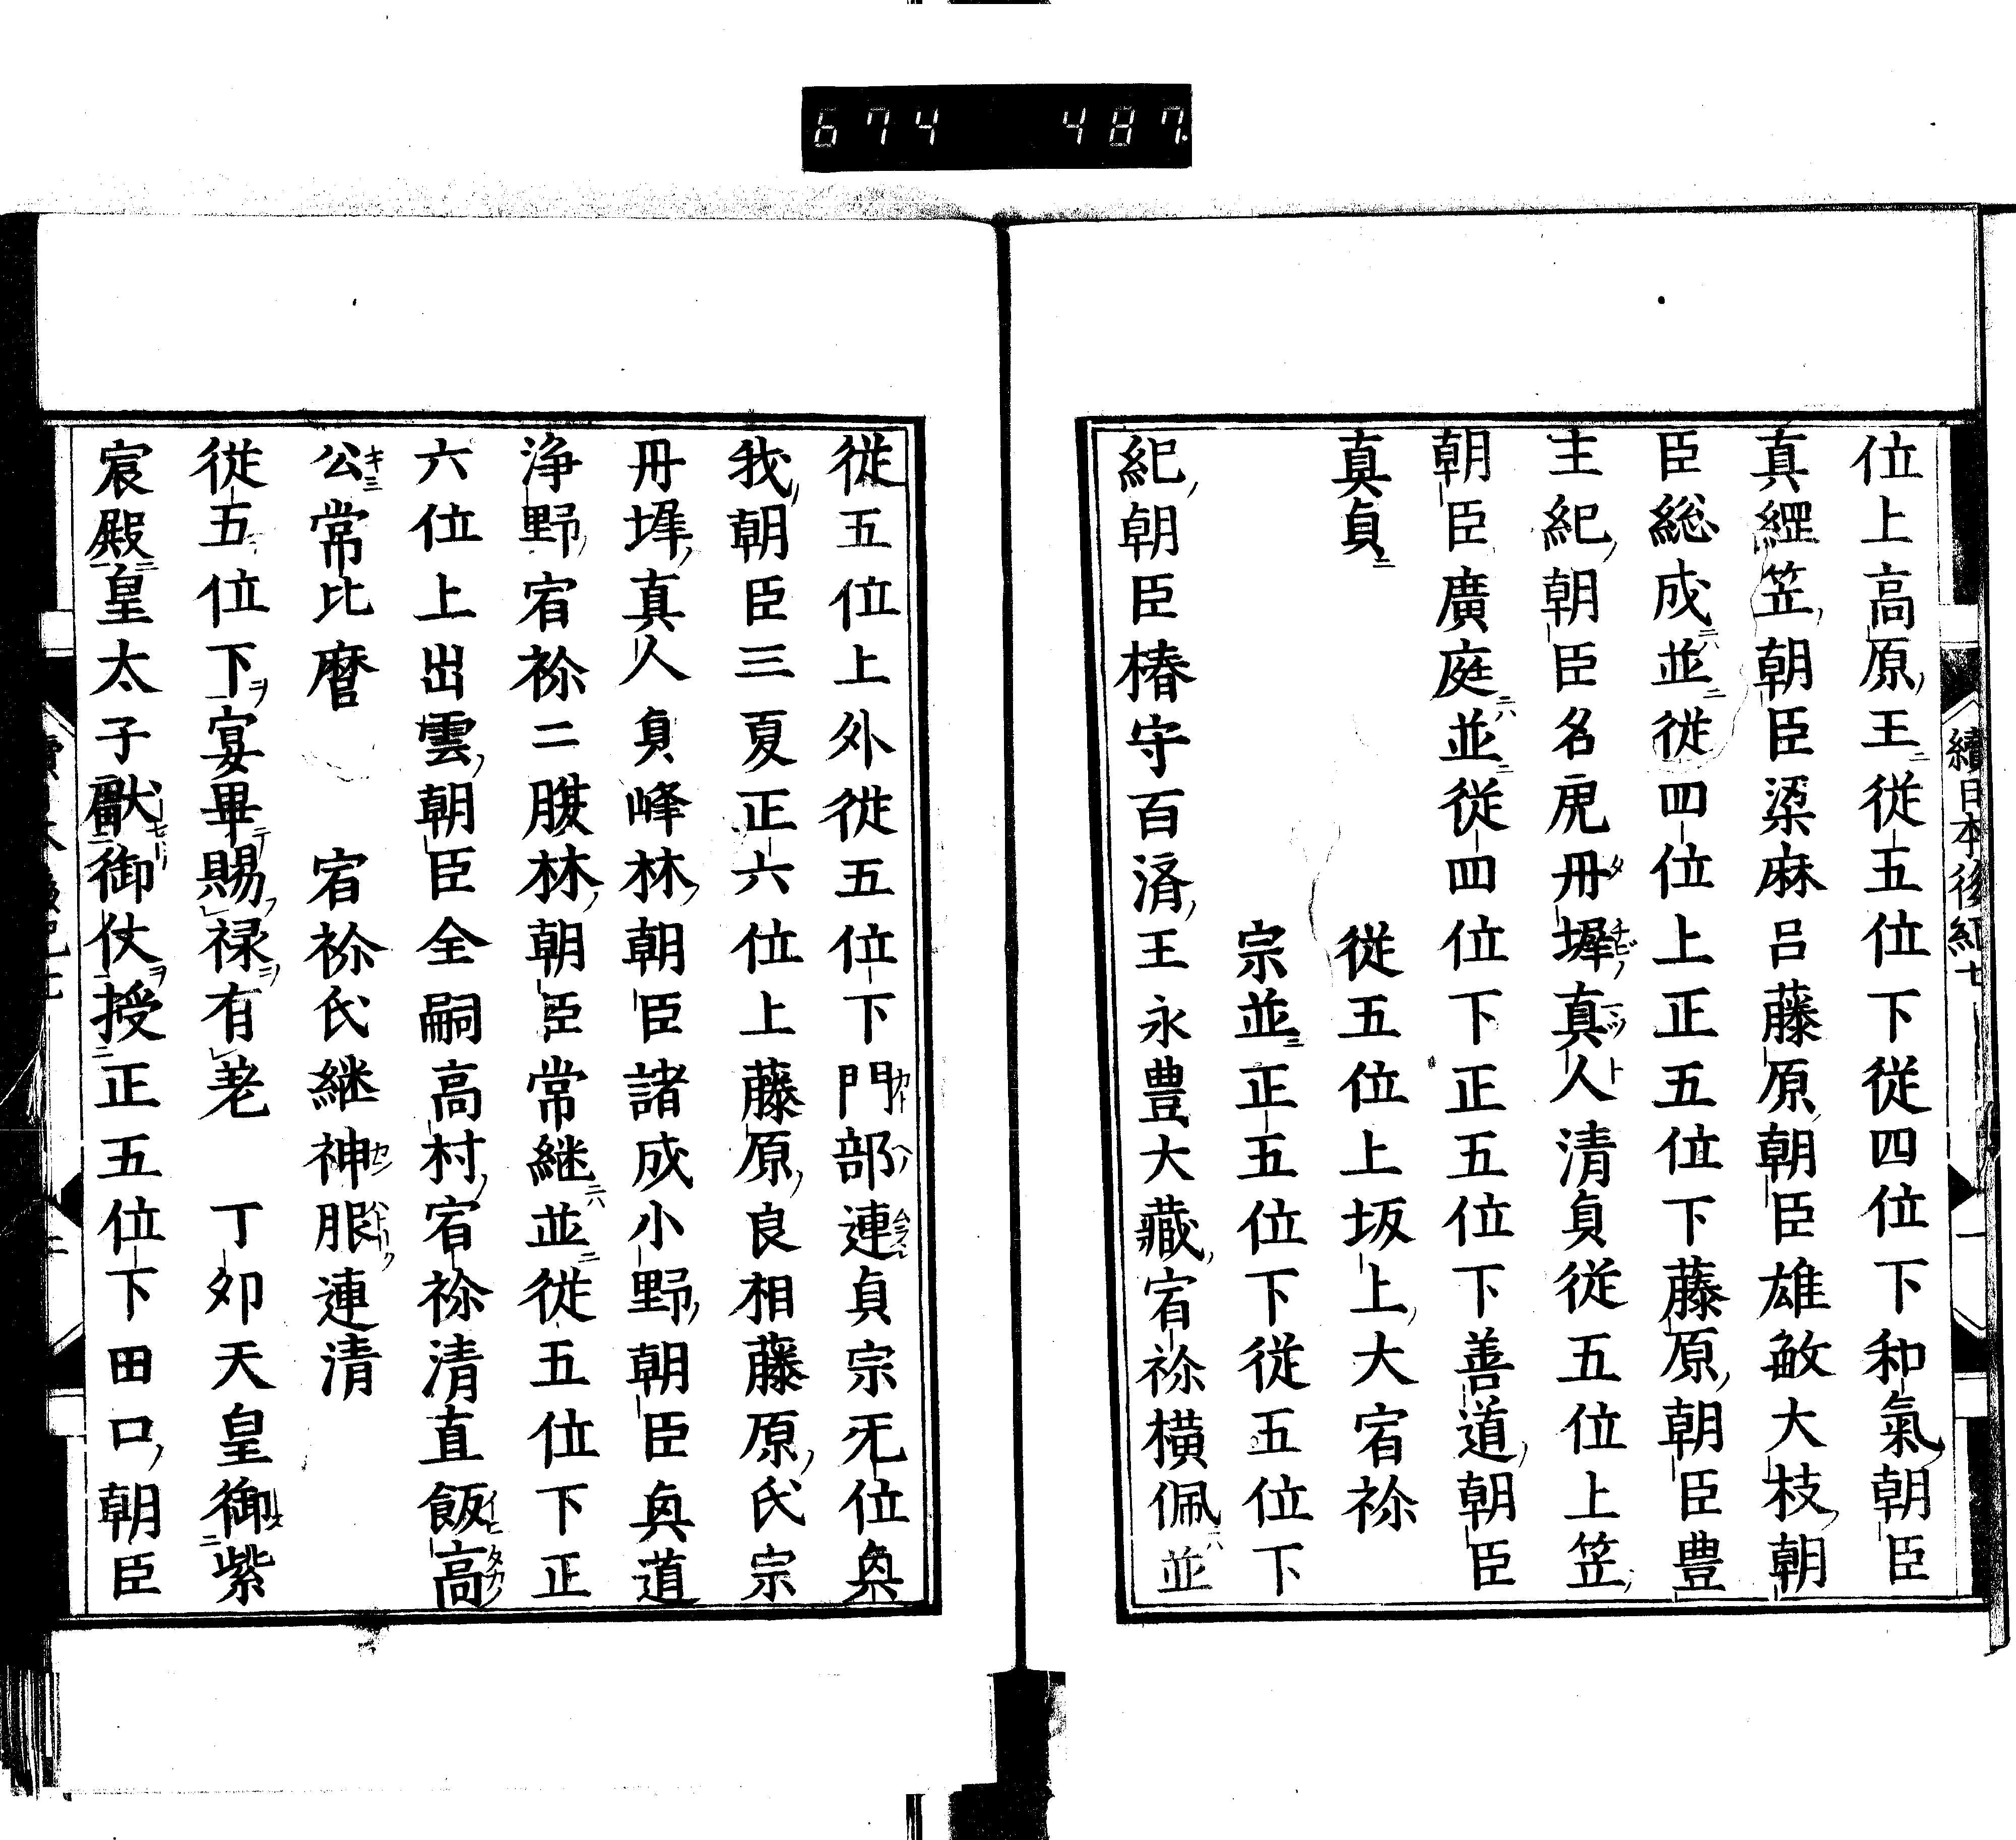 674 487
續日本後紀七 一
位上高原王從五位下從四位下和氣朝臣
真綱笠朝臣梁麻呂藤原朝臣雄敏大枝朝
臣総成並從四位上正五位下藤原朝臣豊
主紀朝臣名虎丹墀真人清貞從五位上笠
朝臣廣庭並從四位下正五位下善道朝臣
真貞 從五位上坂上大宿祢
宗並正五位下從五位下
紀朝臣椿守百済王永豊大藏宿祢横佩並
從五位上外從五位下門部連貞宗无位奥
我朝臣三夏正六位上藤原良相藤原氏宗
丹墀真人貞峰林朝臣諸成小野朝臣真道
浄野宿祢二腹林朝臣常継並從五位下正
六位上出雲朝臣全嗣高村宿祢清直飯高
公常比麿 宿祢氏継神服連清
從五位下宴畢賜禄有差 丁卯天皇御紫
宸殿皇太子献御仗授正五位下田口朝臣